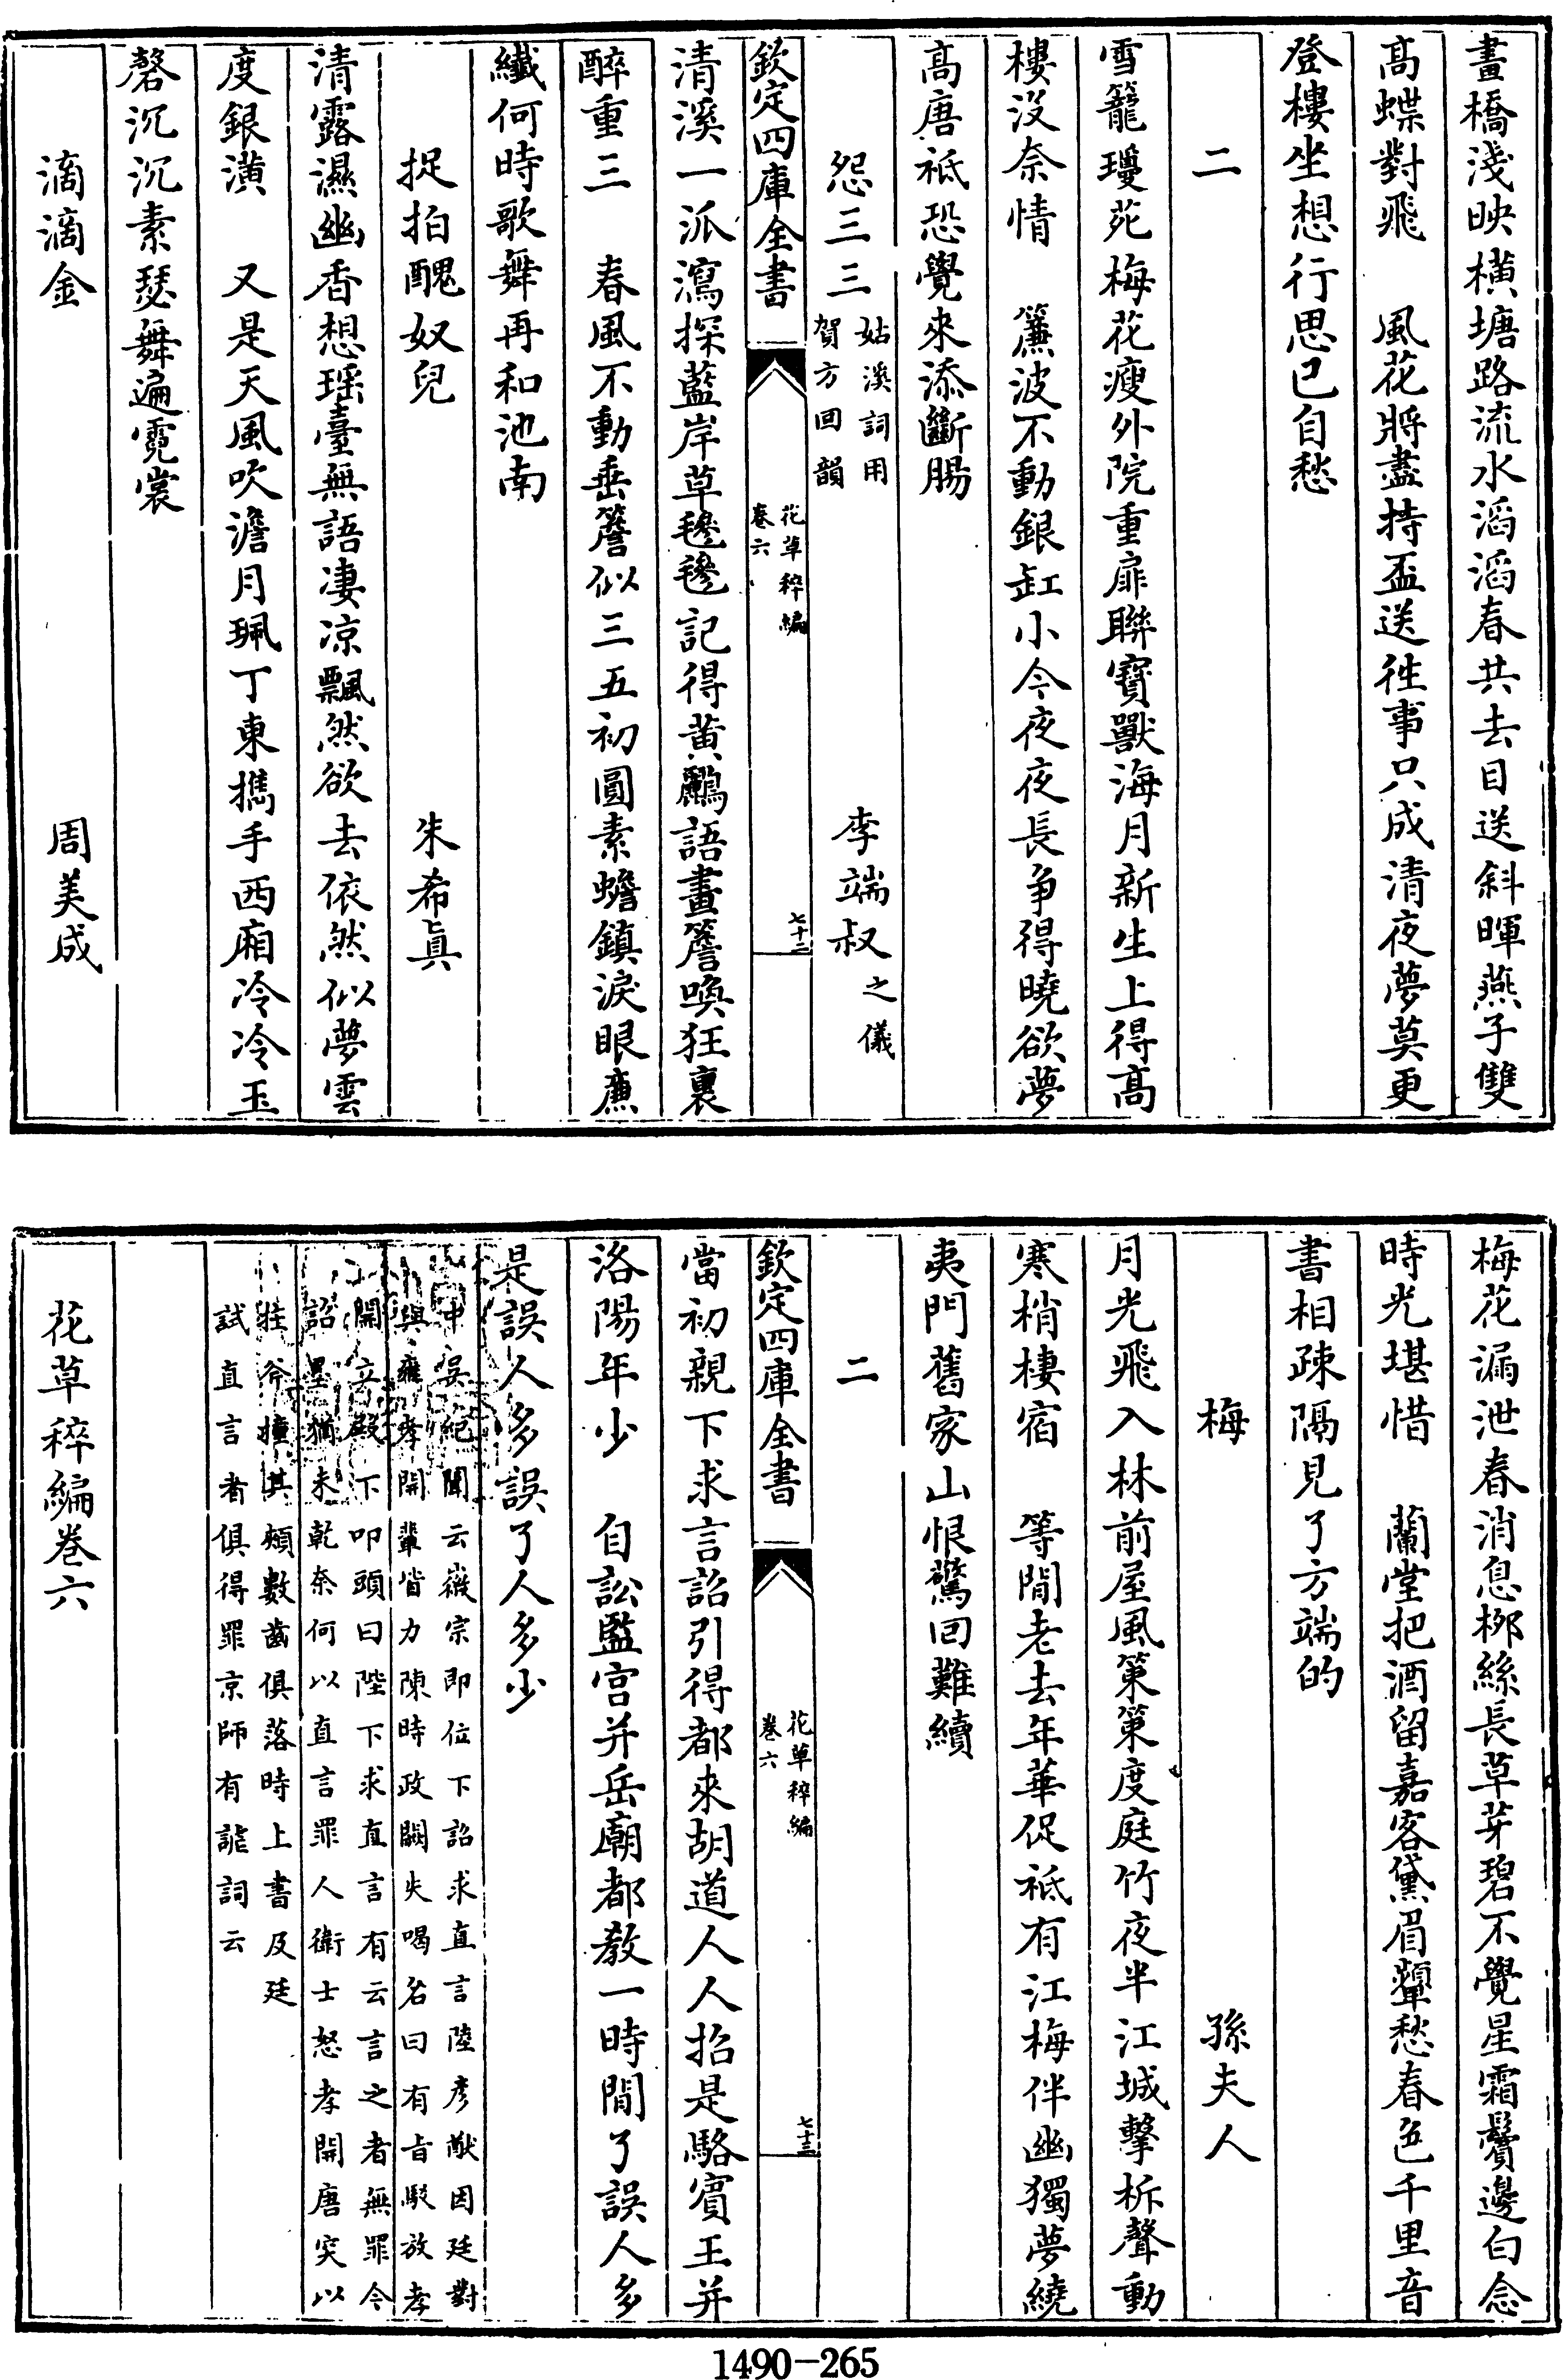 畫橋淺映橫塘路流水滔滔春共去目送斜暉燕子雙
髙蝶對飛　風花將盡持盃送徃事只成清夜夢莫更
登樓坐想行思已自愁
二
雪籠瓊苑梅花瘦外院重扉聯寶獸海月新生上得髙
樓沒奈情　簾波不動銀缸小今夜夜長爭得曉欲夢
髙唐祗恐覺來添斷腸
怨三三　姑溪詞用賀方回韻　李端叔之儀
欽定四庫全書　花草稡編卷六　七十二
清溪一派瀉揉藍岸草毿毿記得黄鸝語畫簷喚狂裏
醉重三　春風不動垂簷似三五初圓素蟾鎮淚眼亷
纖何時歌舞再和池南
捉拍醜奴兒　朱希真
清露濕幽香想瑶臺無語淒涼飄然欲去依然似夢雲
度銀潢　又是天風吹澹月珮丁東擕手西廂冷冷玉
磬沉沉素瑟舞遍霓裳
滴滴金　周美成
梅花漏泄春消息栁絲長草芽碧不覺星霜鬢邊白念
時光堪惜　蘭堂把酒留嘉客黛眉顰愁春色千里音
書相疎隔見了方端的
梅　孫夫人
月光飛入林前屋風策策度庭竹夜半江城擊柝聲動
寒梢棲宿　等閒老去年華促祗有江梅伴幽獨夢繞
夷門舊家山恨驚回難續
二
欽定四庫全書　花草稡編卷六　七十三
當初親下求言詔引得都來胡道人人招是駱賓王并
洛陽年少　自訟監宫并岳廟都教一時閒了誤人多
是誤人多誤了人多少
中吳紀聞云徽宗即位下詔求直言陸彥猷因廷對
與雍孝開輩皆力陳時政闕失唱名曰有旨駁放孝
開立殿下叩頭曰陛下求直言有云言之者無罪今
詔墨猶未乾奈何以直言罪人衛士怒孝開唐突以
拄斧撞其頰數齒俱落時上書及廷
試直言者俱得罪京師有謔詞云
花草稡編卷六
1490—265